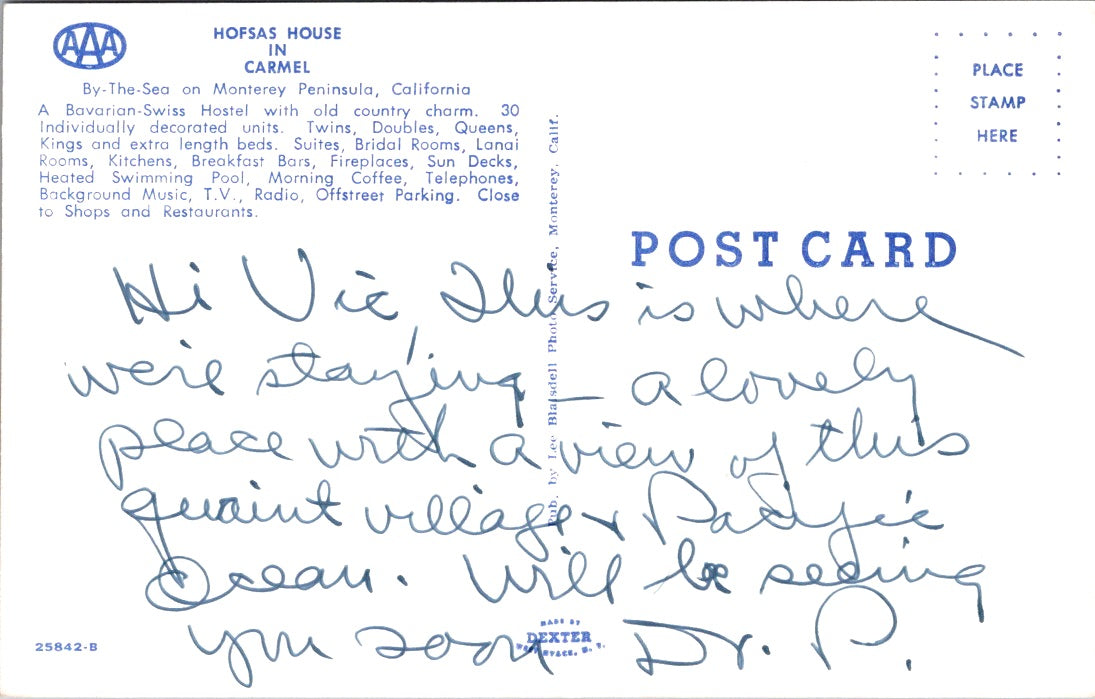 AAA
HOFSAS HOUSE
IN
CARMEL
By-The-Sea on Monterey Peninsula, California
A Bavarian-Swiss Hostel with old country charm. 30
Individually decorated units. Twins, Doubles, Queens,
Kings and extra length beds. Suites, Bridal Rooms, Lanai
Rooms, Kitchens, Breakfast Bars, Fireplaces, Sun Decks,
Heated Swimming Pool, Morning Coffee, Telephones,
Background Music, T.V., Radio, Offstreet Parking. Close
to Shops and Restaurants.
PLACE
STAMP
HERE
POST CARD
Pub. by Lee Blaisdell Photo Service, Monterey, Calif.
Hi Vic, This is where
we're staying – a lovely
place with a view of this
quaint village & Pacific
Ocean. Will be seeing
you soon Dr. P.
25842-B
MADE BY
DEXTER
WEST NYACK, N. Y.